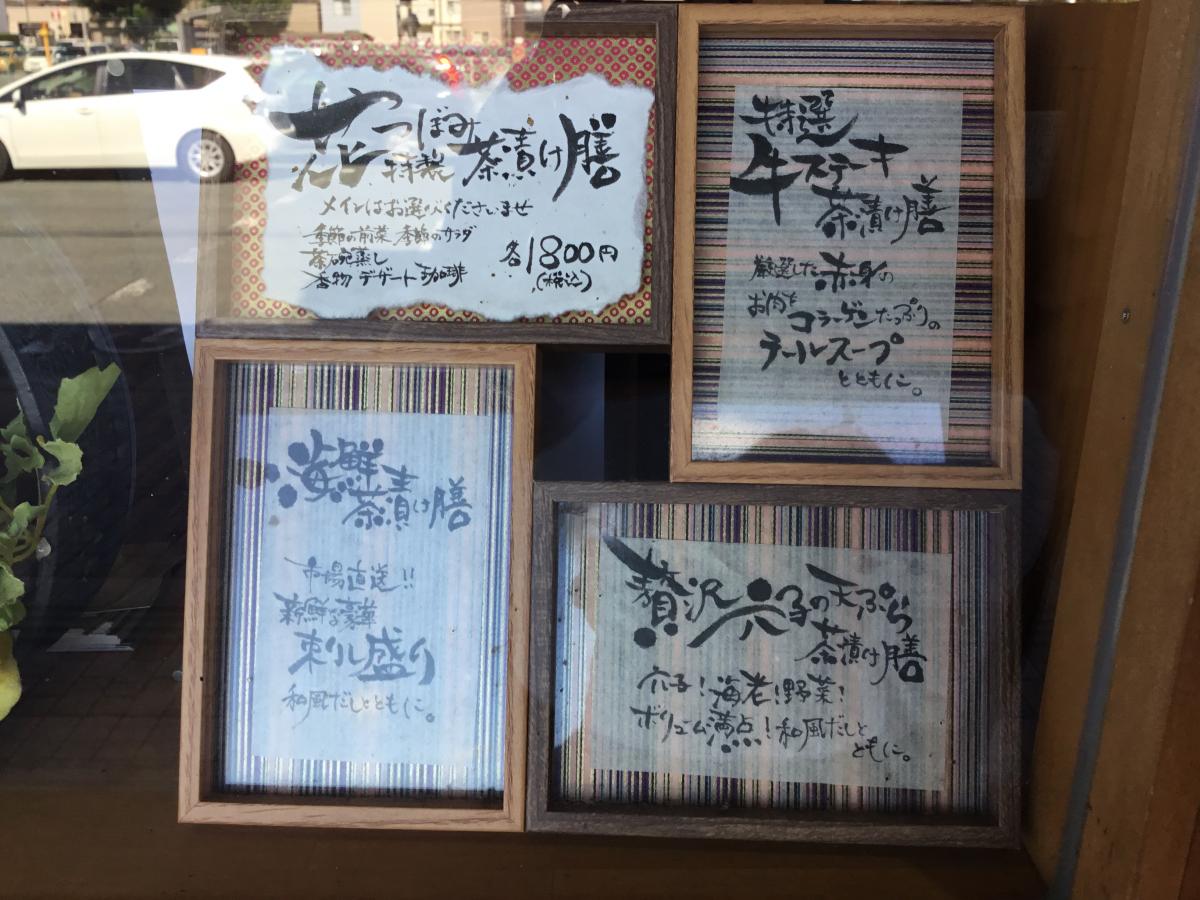 花つぼみ
特製 茶漬け膳
メインはお選びくださいませ
季節の前菜 季節のサラダ
茶碗蒸し
香物 デザート 珈琲
各1800円
(税込)
特選
牛ステーキ
茶漬け膳
厳選した赤身の
お肉をコラーゲンたっぷりの
テールスープ
とともに。
海鮮
茶漬け膳
市場直送!!
新鮮な豪華
刺し盛り
和風だしとともに。
贅沢穴子の天ぷら
茶漬け膳
穴子!海老!野菜!
ボリューム満点!和風だしと
ともに。